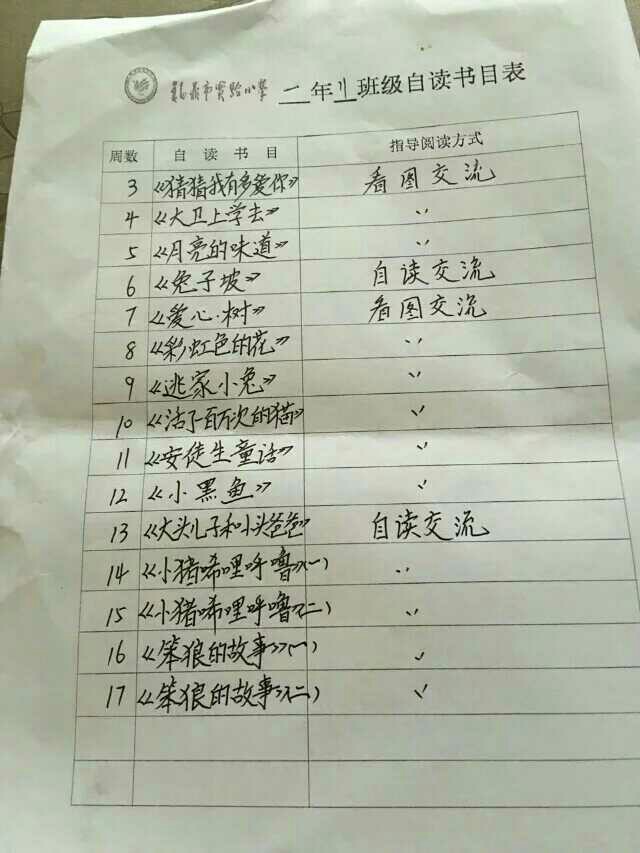 市实验小学 二年 班级自读书目表
周数 自读书目 指导阅读方式
3 《猜猜我有多爱你》 看图交流
4 《大卫上学去》 〃
5 《月亮的味道》 〃
6 《兔子坡》 自读交流
7 《爱心树》 看图交流
8 《彩虹色的花》 〃
9 《逃家小兔》 〃
10 《活了百万次的猫》 〃
11 《安徒生童话》 〃
12 《小黑鱼》 〃
13 《大头儿子和小头爸爸》 自读交流
14 《小猪唏哩呼噜》(一) 〃
15 《小猪唏哩呼噜》(二) 〃
16 《笨狼的故事》(一) 〃
17 《笨狼的故事》(二) 〃